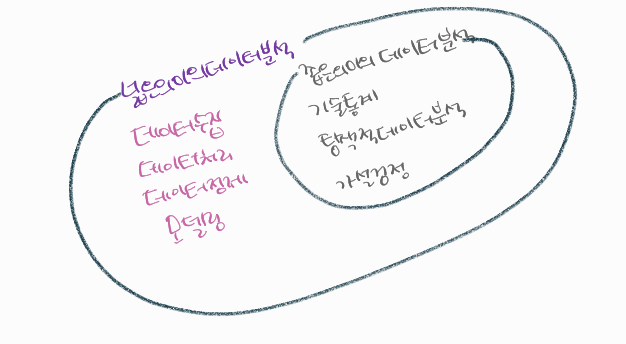 넓은의미의데이터분석
데이터수집
데이터처리
데이터정제
모델링
좁은의미의 데이터분석
기술통계
탐색적데이터분석
가설검정